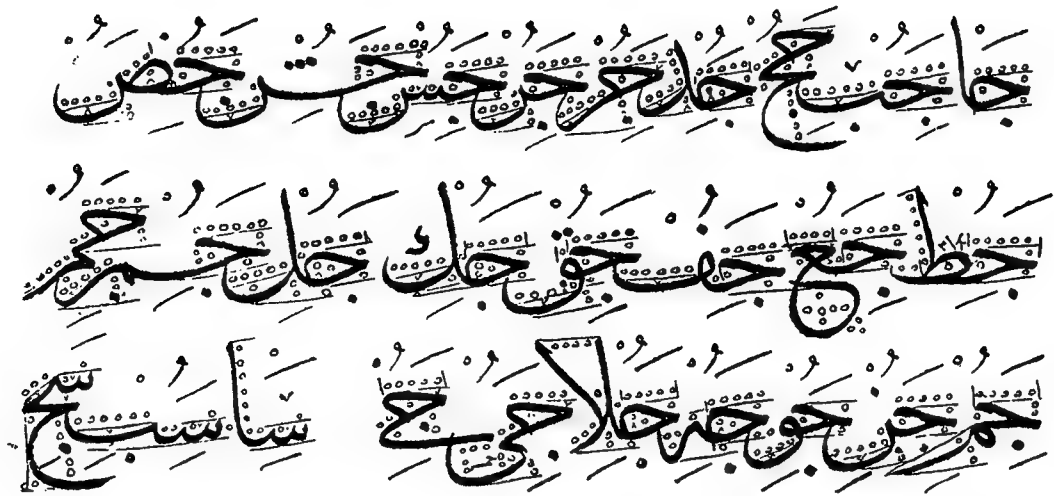 جا جب جج جد جر جس جس جش جص
جط جع جف جق جك جل جم جم
جم جن جو جه جلا جى جے سا سب سج